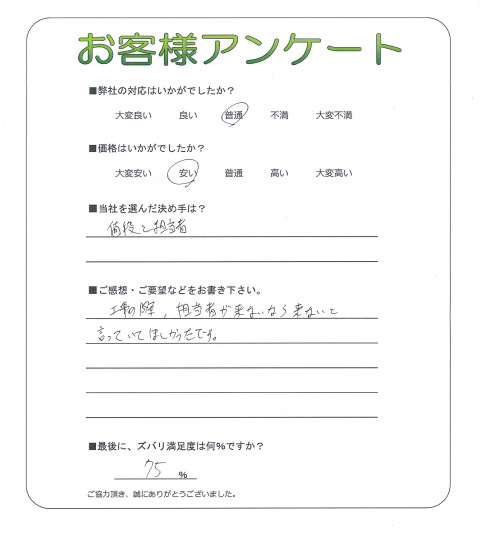 お客様アンケート
■弊社の対応はいかがでしたか？
大変良い 良い 普通 不満 大変不満
■価格はいかがでしたか？
大変安い 安い 普通 高い 大変高い
■当社を選んだ決め手は？
価段と担当者
■ご感想・ご要望などをお書き下さい。
工事の際，担当者が来ないなら来ないと
言っていてほしかったです。
■最後に、ズバリ満足度は何％ですか？
75 ％
ご協力頂き、誠にありがとうございました。